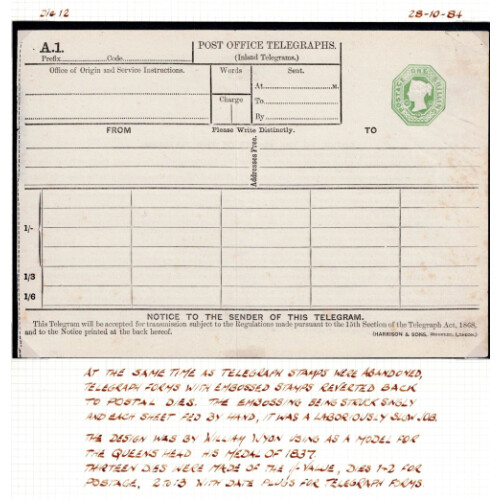 Die 12
28-10-84
A.1.
POST OFFICE TELEGRAPHS.
(Inland Telegrams.)
Prefix Code
Office of Origin and Service Instructions.
Words
Sent.
At M.
Charge
To
By
POSTAGE ONE SHILLING
FROM
Please Write Distinctly.
TO
Addresses Free.
1/-
1/3
1/6
NOTICE TO THE SENDER OF THIS TELEGRAM.
This Telegram will be accepted for transmission subject to the Regulations made pursuant to the 15th Section of the Telegraph Act, 1868,
and to the Notice printed at the back hereof.
(HARRISON & SONS, London.)
AT THE SAME TIME AS TELEGRAPH STAMPS WERE ABANDONED,
TELEGRAPH FORMS WITH EMBOSSED STAMPS REVERTED BACK
TO POSTAL DIES. THE EMBOSSING BEING STRUCK SINGLY
AND EACH SHEET FED BY HAND, IT WAS A LABORIOUSLY SLOW JOB.
THE DESIGN WAS BY WILLIAM WYON USING AS A MODEL FOR
THE QUEENS HEAD HIS MEDAL OF 1837.
THIRTEEN DIES WERE MADE OF THE 1/- VALUE, DIES 1-2 FOR
POSTAGE, 2 TO 13 WITH DATE PLUGS FOR TELEGRAPH FORMS.